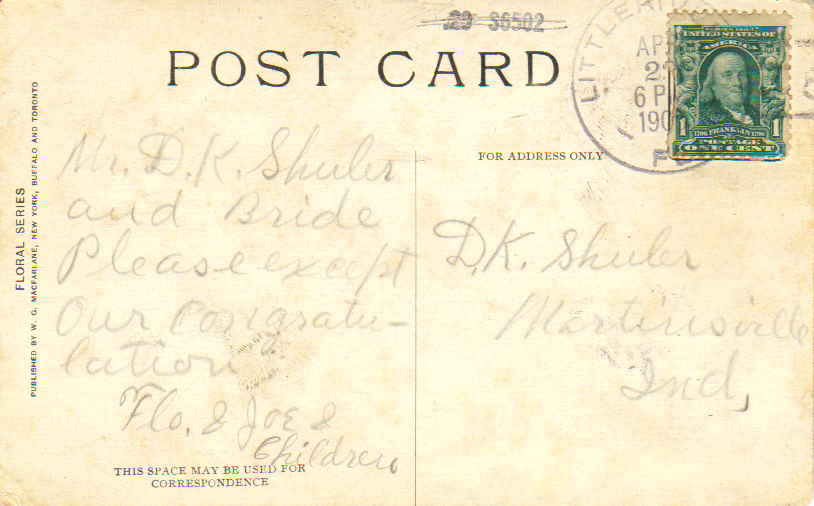 29 S6502
POST CARD
LITTLE
AP
2
6 P
190
F
UNITED STATES OF
AMERICA
1 1706 FRANKLIN 1790 1
POSTAGE
ONE CENT
FOR ADDRESS ONLY
Mr. D. K. Shuler
and Bride
Please except
Our Congratu-
lation
Flo. & Joe &
Children
D. K. Shuler
Martinsville
Ind,
THIS SPACE MAY BE USED FOR
CORRESPONDENCE
FLORAL SERIES
PUBLISHED BY W. G. MACFARLANE, NEW YORK, BUFFALO AND TORONTO